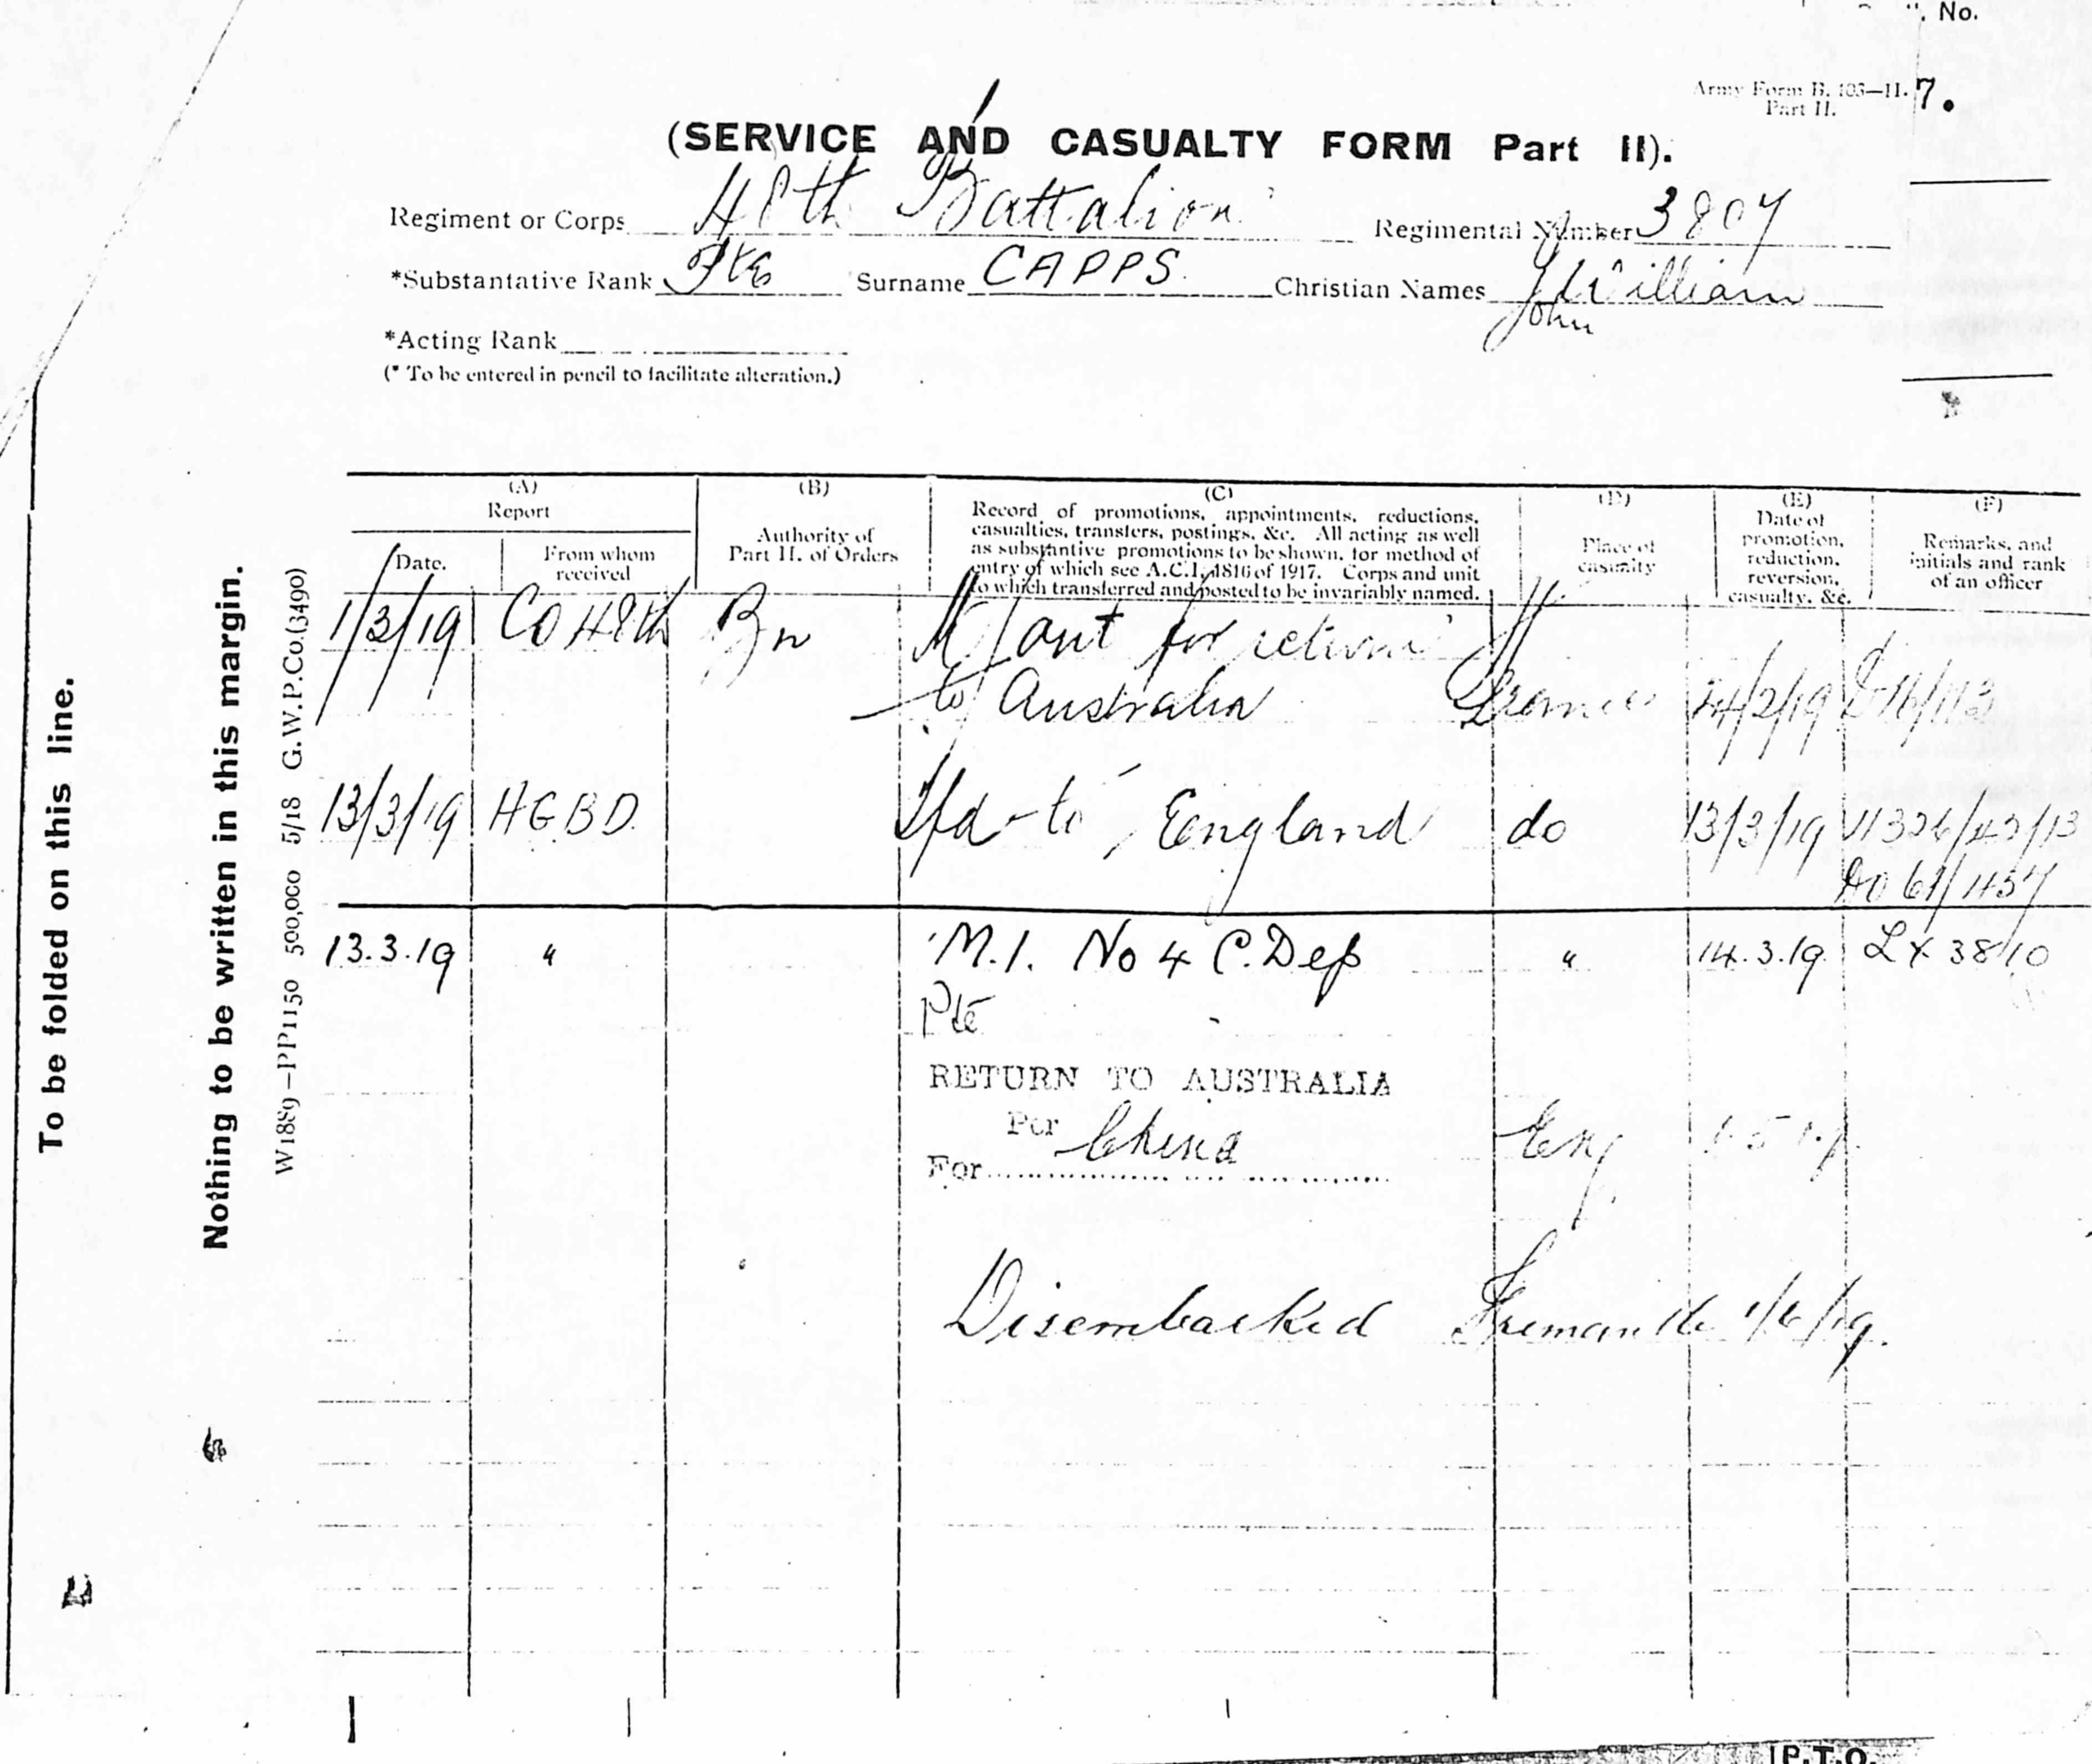 ". No.
Army Form B. 103—II. 7.
Part II.
(SERVICE AND CASUALTY FORM Part II).
Regiment or Corps 48th Battalion Regimental Number 3807
*Substantative Rank Pte Surname CAPPS. Christian Names William
John
*Acting Rank
(* To be entered in pencil to facilitate alteration.)
To be folded on this line.
Nothing to be written in this margin.
W1889—PP1150 500,000 5/18 G.W.P.Co.(3490)
(A) (B) (C) (D) (E) (F)
Report
Date. From whom received
Authority of Part II. of Orders
Record of promotions, appointments, reductions,
casualties, transfers, postings, &c. All acting as well
as substantive promotions to be shown, for method of
entry of which see A.C.I. 1816 of 1917. Corps and unit
to which transferred and posted to be invariably named.
Place of casualty
Date of promotion, reduction, reversion, casualty, &c.
Remarks, and initials and rank of an officer
1/3/19 CO 48th Bn M/out for return
to Australia France 24/2/19
13/3/19 HGBD. Tfd to England do 13/3/19 V1326/43/13
DO 61/1457
13.3.19 " M.I. No 4 C. Dep " 14.3.19. LX 3810
Pte
RETURN TO AUSTRALIA
Per China Eng
For
Disembarked Fremantle 1/6/19.
P.T.O.